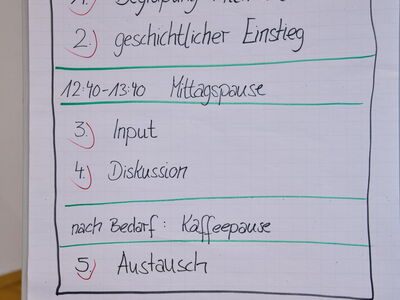 1.) Begrüßung
2.) geschichtlicher Einstieg
12:40-13:40 Mittagspause
3.) Input
4.) Diskussion
nach Bedarf: Kaffeepause
5.) Austausch